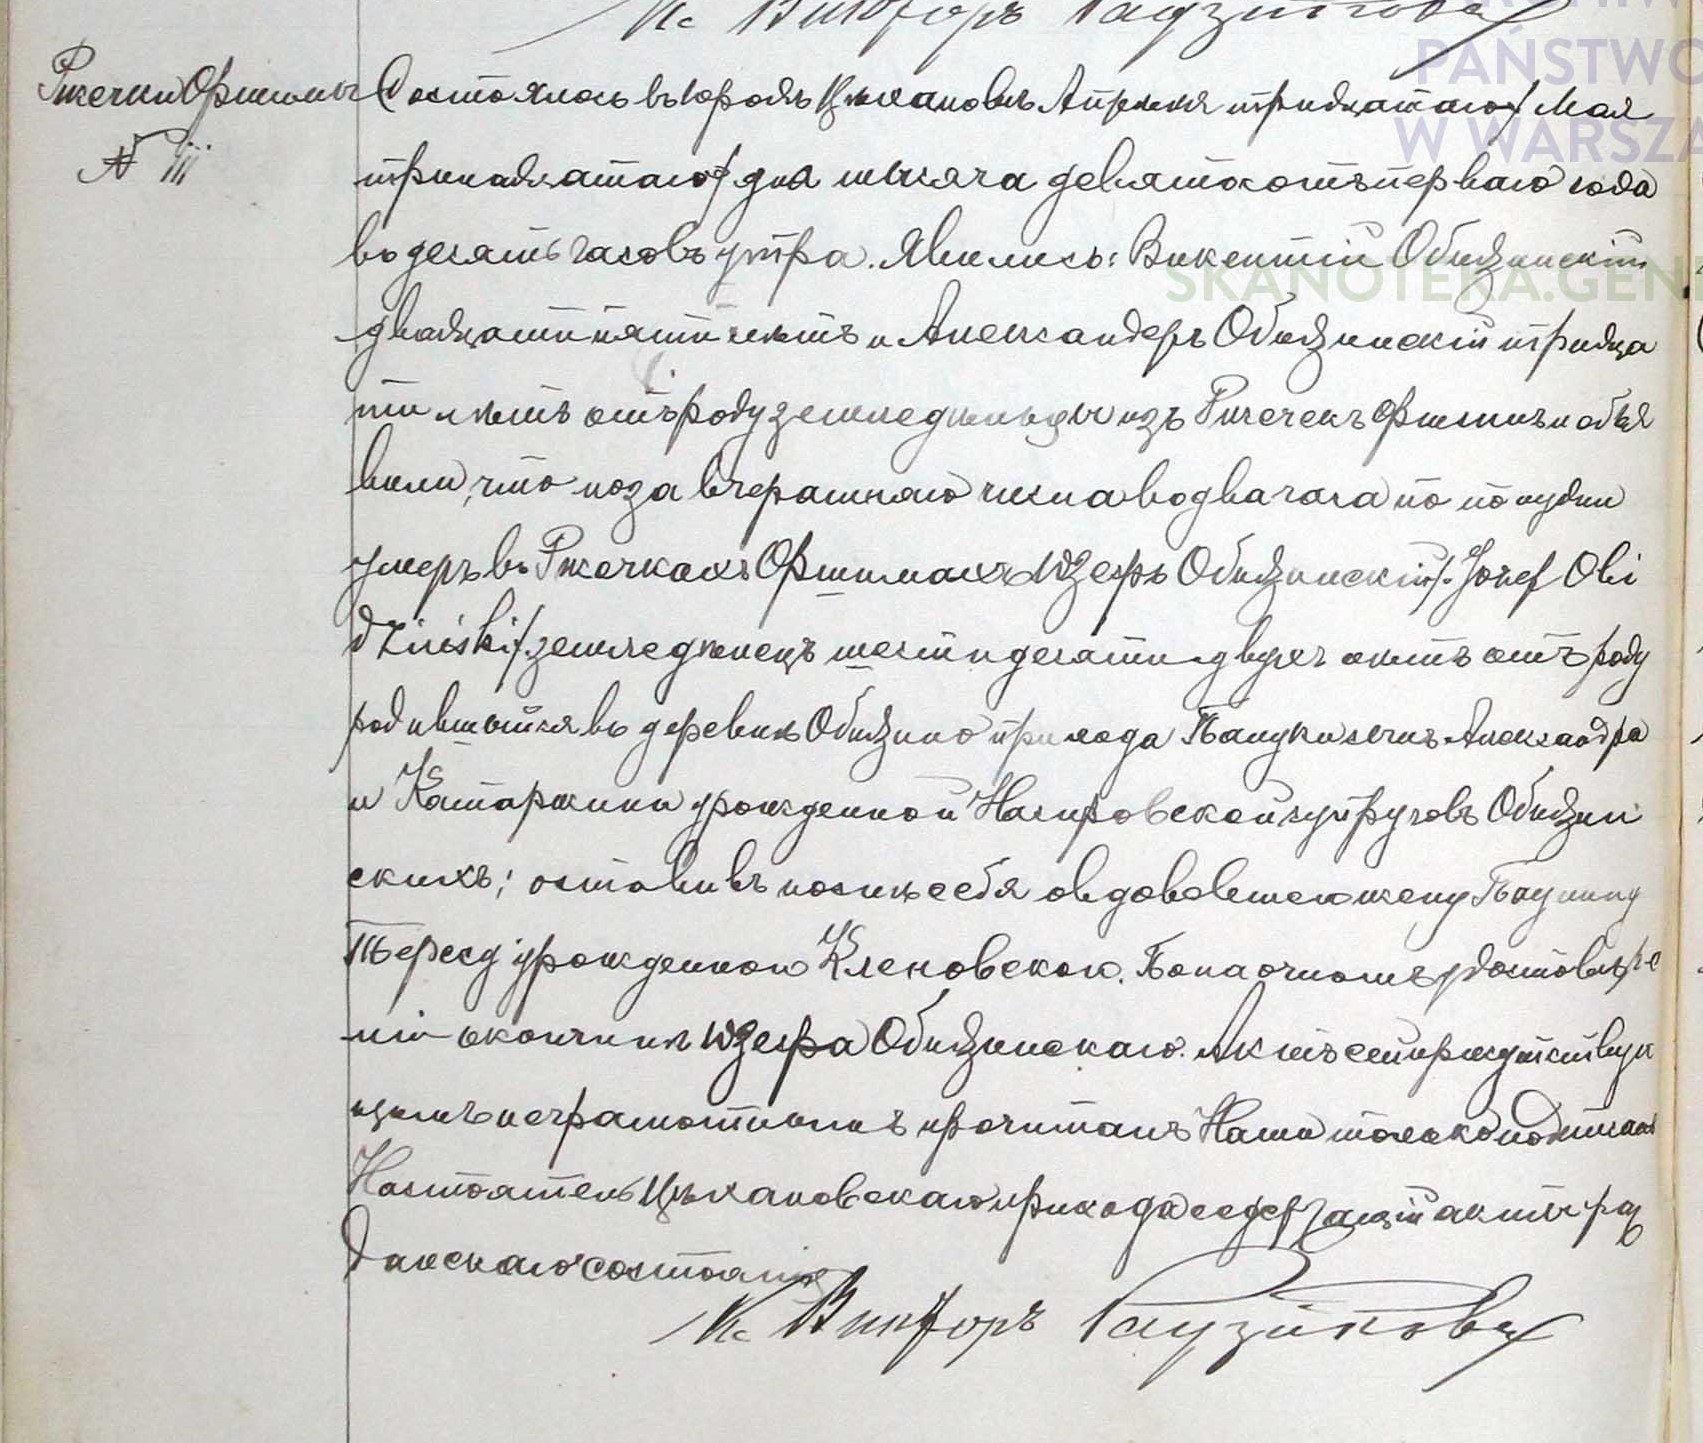 Кс Викторъ
Ржечки Фршоны
N 111
Состоялось въ городѣ Цѣхановѣ Апрѣля тридцатаго/ Мая
тринадцатаго/ дня тысяча девятьсотъ перваго года
въ десять часовъ утра. Явились: Викентій Обидзинскій
двадцати пяти лѣтъ и Александеръ Обидзинскій тридца
ти лѣтъ отъ роду земледѣльцы изъ Ржечекъ и объя
вили, что поза вчерашняго числа въ два часа по полудни
умеръ въ Ржечкахъ Юзефъ Обидзинскій /Józef Obi
dziński/ земледѣлецъ шестидесяти двухъ лѣтъ отъ роду
родившыйся въ деревнѣ Обидзино прихода Александра
и Катаржины урожденной супруговъ Обидзин
скихъ; оставивъ послѣ себя овдовевшею жену Паулину
Тересу урожденною Кленовскою. По наочномъ удостовѣре
ніи о кончинѣ Юзефа Обидзинскаго. Актъ сей присудствую
щимъ неграмотнымъ прочитанъ Нами только подписанъ
Настоятель Цѣхановскаго прихода содержащій акты граж
данскаго состоянія
Кс Викторъ
PAŃSTWO
W WARSZA
SKANOTEKA.GEN